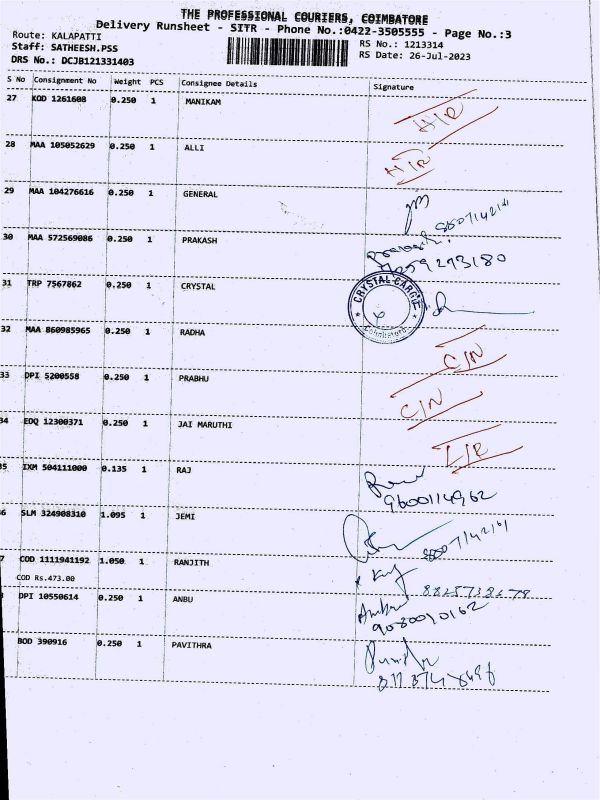 THE PROFESSIONAL COURIERS, COIMBATORE
Delivery Runsheet - SITR - Phone No.:0422-3505555 - Page No.:3
Route: KALAPATTI
RS No.: 1213314
Staff: SATHEESH.PSS
RS Date: 26-Jul-2023
DRS No.: DCJB121331403
S No Consignment No Weight PCS Consignee Details Signature
27 KOD 1261608 0.250 1 MANIKAM
28 MAA 105052629 0.250 1 ALLI
29 MAA 104276616 0.250 1 GENERAL
30 MAA 572569086 0.250 1 PRAKASH
31 TRP 7567862 0.250 1 CRYSTAL
CRYSTAL CARGO
Coimbatore
32 MAA 860985965 0.250 1 RADHA C/N
33 DPI 5200558 0.250 1 PRABHU C/N
34 EDQ 12300371 0.250 1 JAI MARUTHI
35 IXM 504111000 0.135 1 RAJ
9600114962
6 SLM 324908310 1.095 1 JEMI
7 COD 1111941192 1.050 1 RANJITH
COD Rs.473.00
DPI 10550614 0.250 1 ANBU
BOD 390916 0.250 1 PAVITHRA